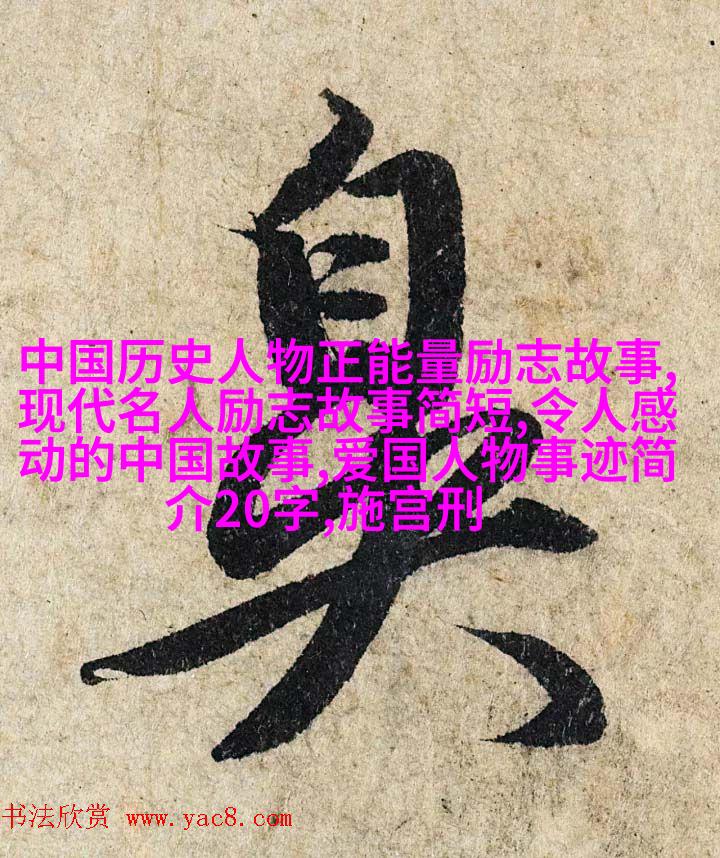 臭
中国历史人物正能量励志故事,
现代名人励志故事简短,令人感
动的中国故事,爱国人物事迹简
介20字,施宫刑
书法欣赏 www.yac8.com